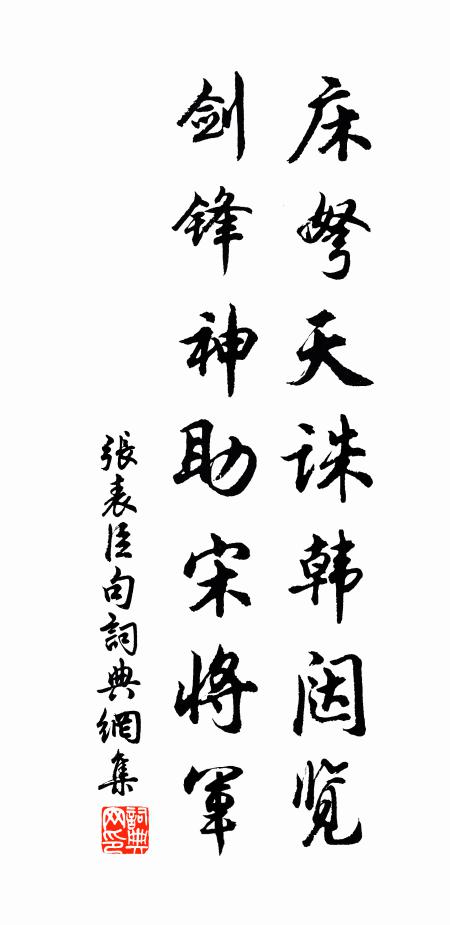 床弩天诛韩闼览
剑锋神助宋将军
張表臣句詞典網集
詞典网印